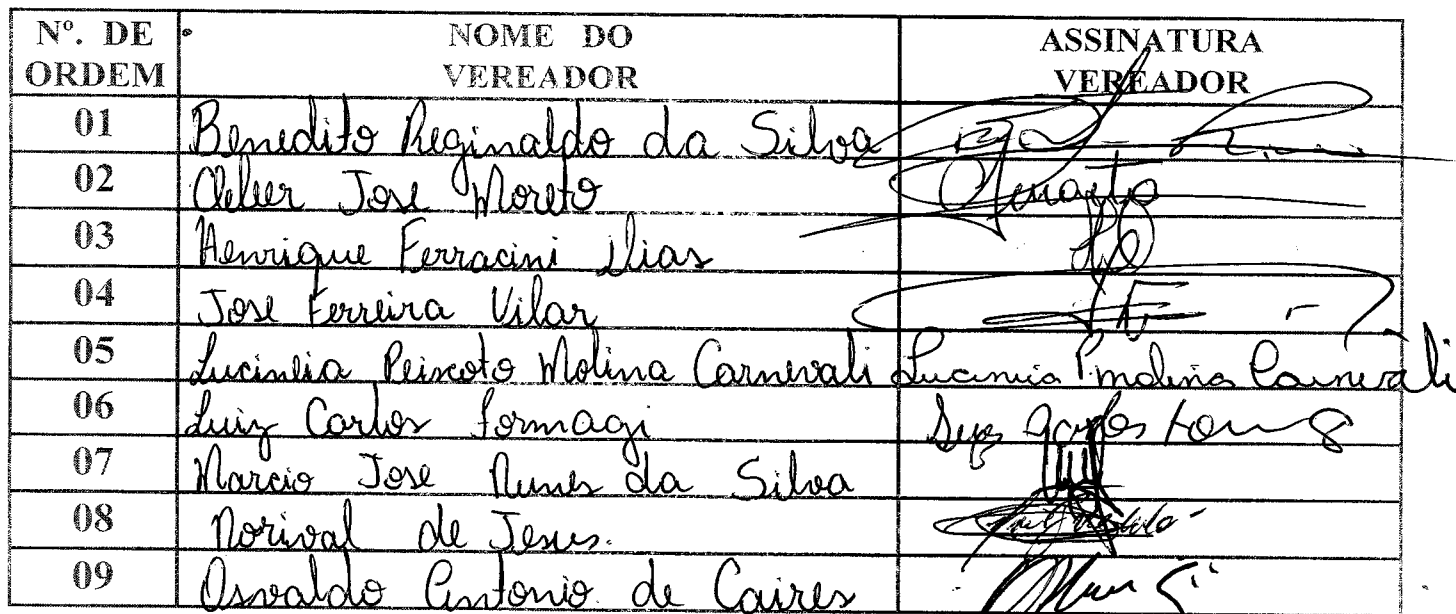 Nº. DE ORDEM NOME DO VEREADOR ASSINATURA VEREADOR
01 Benedito Reginaldo da Silva
02 Cleber Jose Moreto
03 Henrique Ferracini Dias
04 Jose Ferreira Vilar
05 Lucinéia Peixoto Molina Carnevali Lucinéia P. Molina Carnevali
06 Luiz Carlos Formagi Luiz Carlos
07 Marcio Jose Nunes da Silva
08 Norival de Jesus.
09 Osvaldo Antonio de Caires